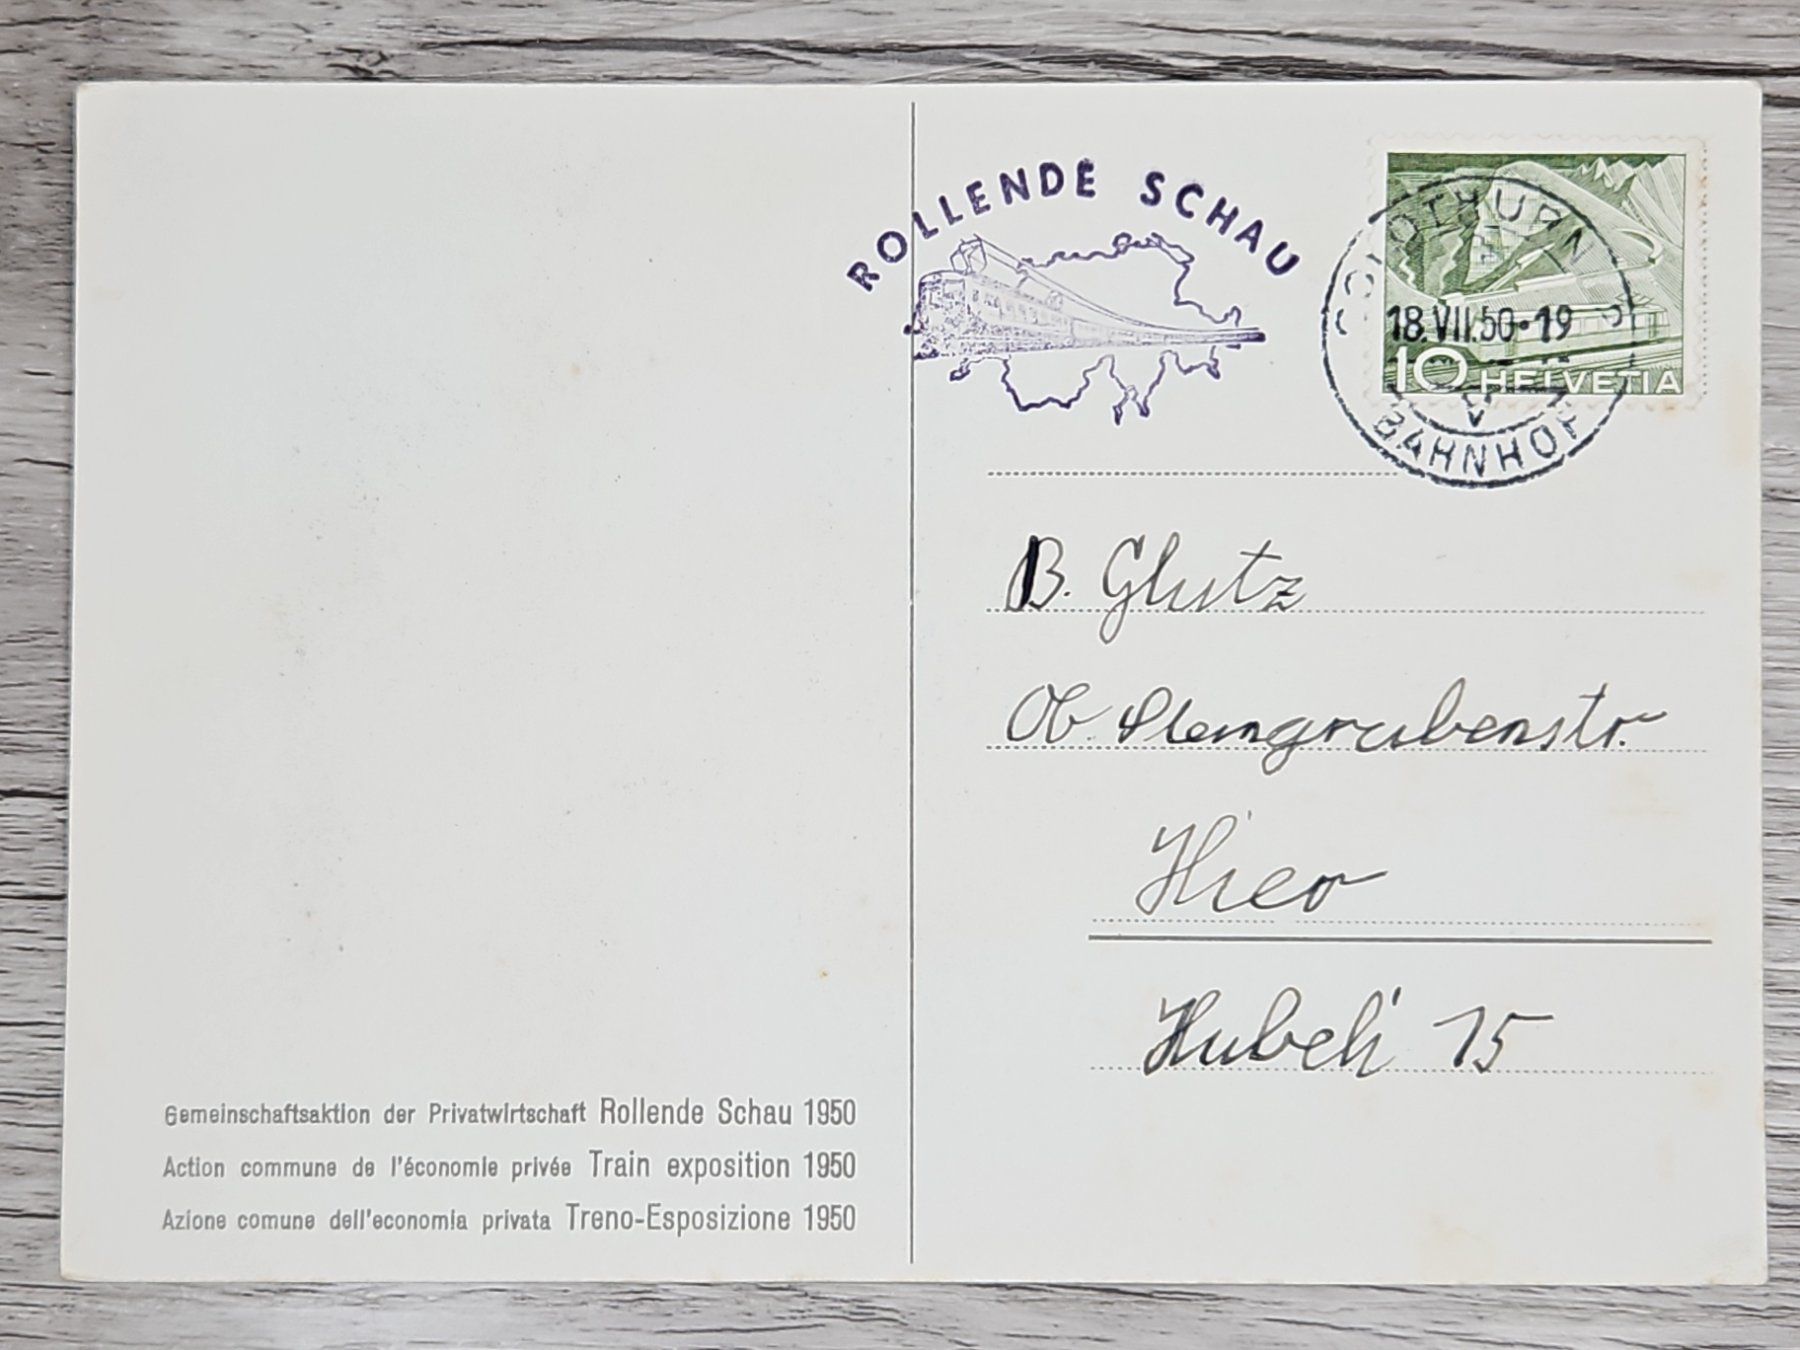 ROLLENDE SCHAU
SOLOTHURN
18.VII.50-19
BAHNHOF
10 HELVETIA
B. Glutz
Ob. Steingrubenstr.
Hier
Hubeli 15
Gemeinschaftsaktion der Privatwirtschaft Rollende Schau 1950
Action commune de l'économie privée Train exposition 1950
Azione comune dell'economia privata Treno-Esposizione 1950